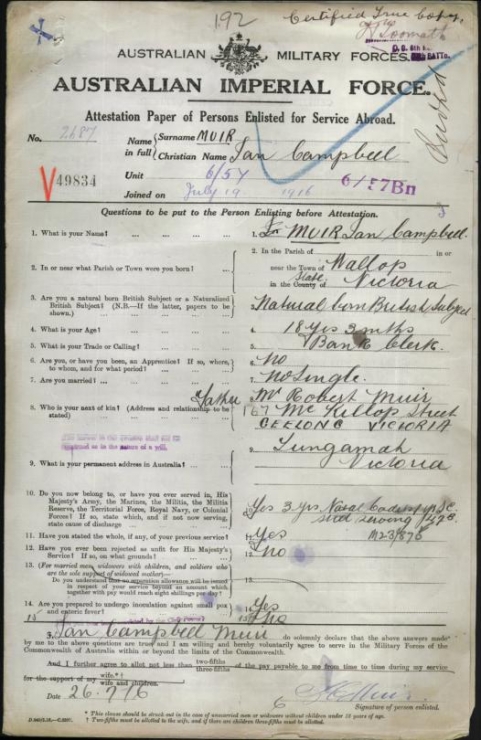 192
Certified True Copy.
AUSTRALIAN MILITARY FORCES.
AUSTRALIAN IMPERIAL FORCE.
Attestation Paper of Persons Enlisted for Service Abroad.
No. 2687
Name in full { Surname MUIR
Christian Name Ian Campbell
Unit 6/57 6/57Bn
V49834
Joined on July 19 1916
Questions to be put to the Person Enlisting before Attestation.
1. What is your Name? ... 1. MUIR Ian Campbell.
2. In or near what Parish or Town were you born? ... 2. In the Parish of in or
near the Town of Wallop
in the County of State Victoria
3. Are you a natural born British Subject or a Naturalised British Subject? (N.B.—If the latter, papers to be shown.) Natural born British Subject
4. What is your Age? ... 4. 18 Yrs 3 mths
5. What is your Trade or Calling? ... 5. Bank Clerk.
6. Are you, or have you been, an Apprentice? If so, where, to whom, and for what period? 6. No
7. Are you married? ... 7. No Single.
8. Who is your next of kin? (Address and relationship to be stated) Father 8. Mr Robert Muir
167 McKillop Street
GEELONG VICTORIA
9. What is your permanent address in Australia? ... 9. Tungamah
Victoria
10. Do you now belong to, or have you ever served in, His Majesty's Army, the Marines, the Militia, the Militia Reserve, the Territorial Force, Royal Navy, or Colonial Forces? If so, state which, and if not now serving, state cause of discharge Yes 3 yrs Naval Cadets
still serving
11. Have you stated the whole, if any, of your previous service? 11. Yes
12. Have you ever been rejected as unfit for His Majesty's Service? If so, on what grounds? 12. No
13. (For married men, widowers with children, and soldiers who are the sole support of widowed mother)—
Do you understand that no separation allowance will be issued in respect of your service beyond an amount which together with pay would reach eight shillings per day? 13.
14. Are you prepared to undergo inoculation against small pox and enteric fever? 14. Yes
15 No
I, Ian Campbell Muir do solemnly declare that the above answers made
by me to the above questions are true, and I am willing and hereby voluntarily agree to serve in the Military Forces of the
Commonwealth of Australia within or beyond the limits of the Commonwealth.
And I further agree to allot not less than two-fifths three-fifths of the pay payable to me from time to time during my service
for the support of my wife.* wife and children. †
Date 26.7.16
Signature of person enlisted.
* This clause should be struck out in the case of unmarried men or widowers without children under 18 years of age.
† Two-fifths must be allotted to the wife, and if there are children three-fifths must be allotted.